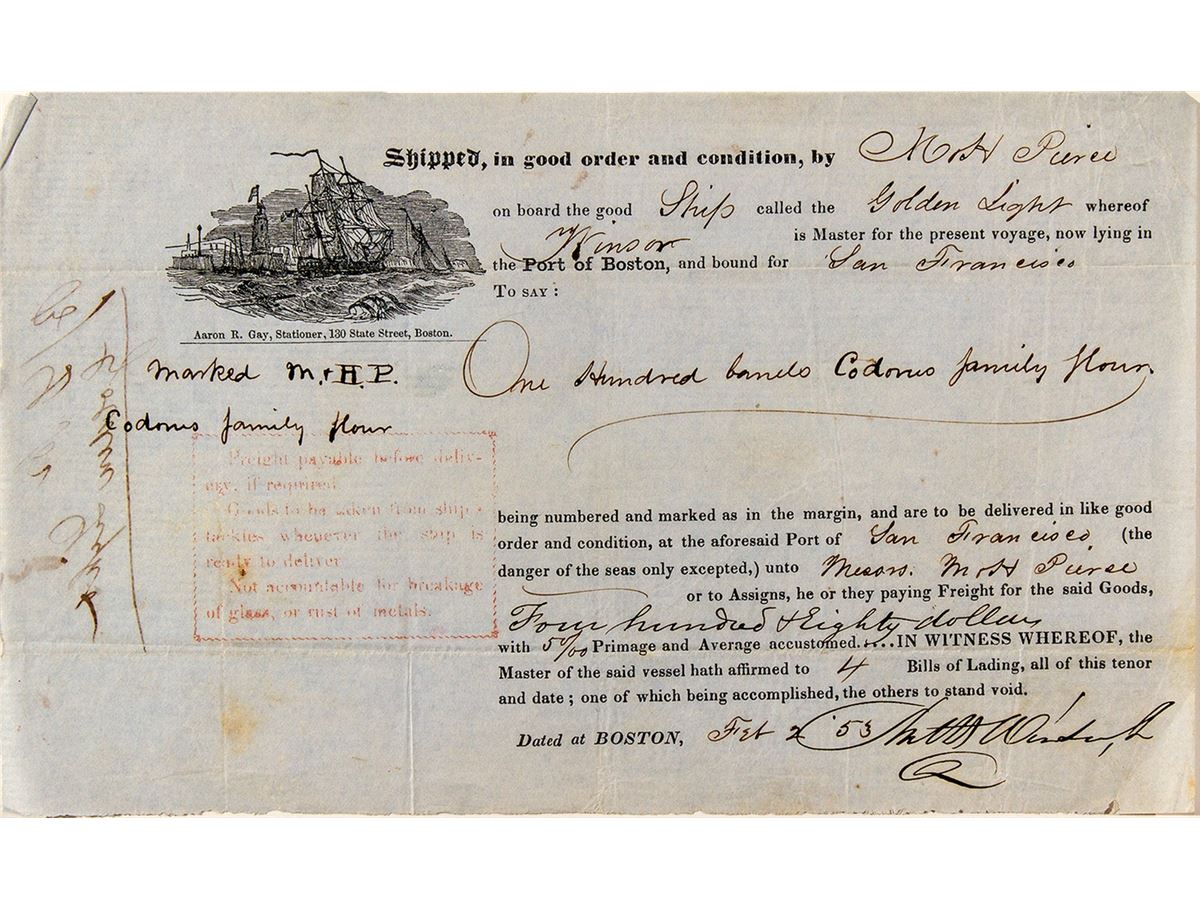 Shipped, in good order and condition, by M & H Pierce
on board the good Ship called the Golden Light whereof
Winsor is Master for the present voyage, now lying in
the Port of Boston, and bound for San Francisco
TO SAY :
Aaron R. Gay, Stationer, 130 State Street, Boston.
marked M. & H. P.
One Hundred barrels Codorus family flour.
Codorus family flour
Freight payable before deliv-
ery, if required
Goods to be taken from ship's
tackles whenever the ship is
ready to deliver
Not accountable for breakage
of glass, or rust of metals.
being numbered and marked as in the margin, and are to be delivered in like good
order and condition, at the aforesaid Port of San Francisco (the
danger of the seas only excepted,) unto Messrs. M & H Pierse
or to Assigns, he or they paying Freight for the said Goods,
Four hundred & Eighty dollars
with 5 0/00 Primage and Average accustomed.....IN WITNESS WHEREOF, the
Master of the said vessel hath affirmed to 4 Bills of Lading, all of this tenor
and date ; one of which being accomplished, the others to stand void.
Dated at BOSTON, Feb 2 '53